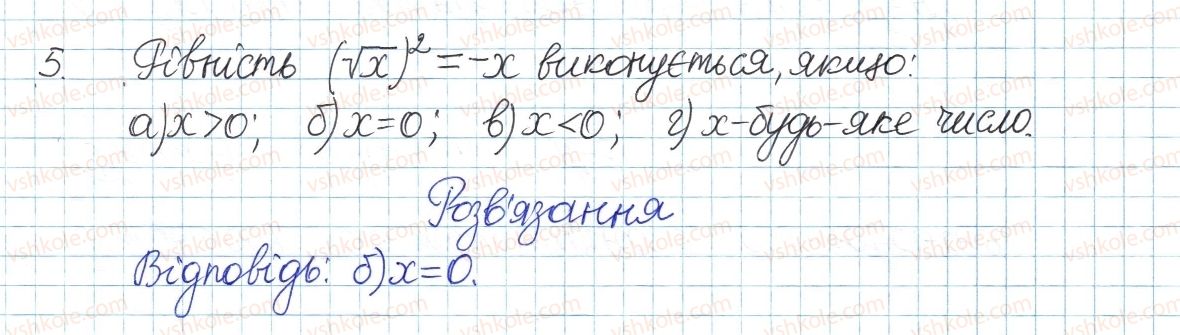 5. Рівність (√x)² = -x виконується, якщо:
а) x > 0; б) x = 0; в) x < 0; г) x - будь-яке число.
Розв'язання
Відповідь: б) x = 0.